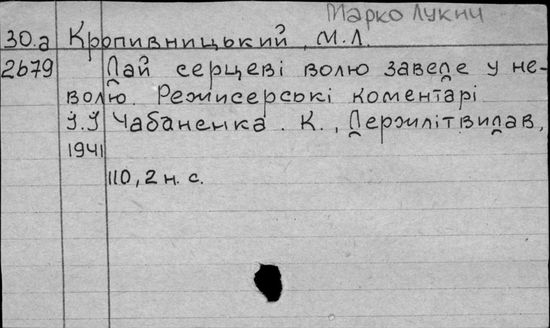 Марко Лукич
30.а Кропивницький, М.Л.
2679 Дай серцеві волю заведе у не-
волю. Режисерські коментарі
У.У Чабаненка. К., Держлітвидав,
1941
110, 2 н. с.